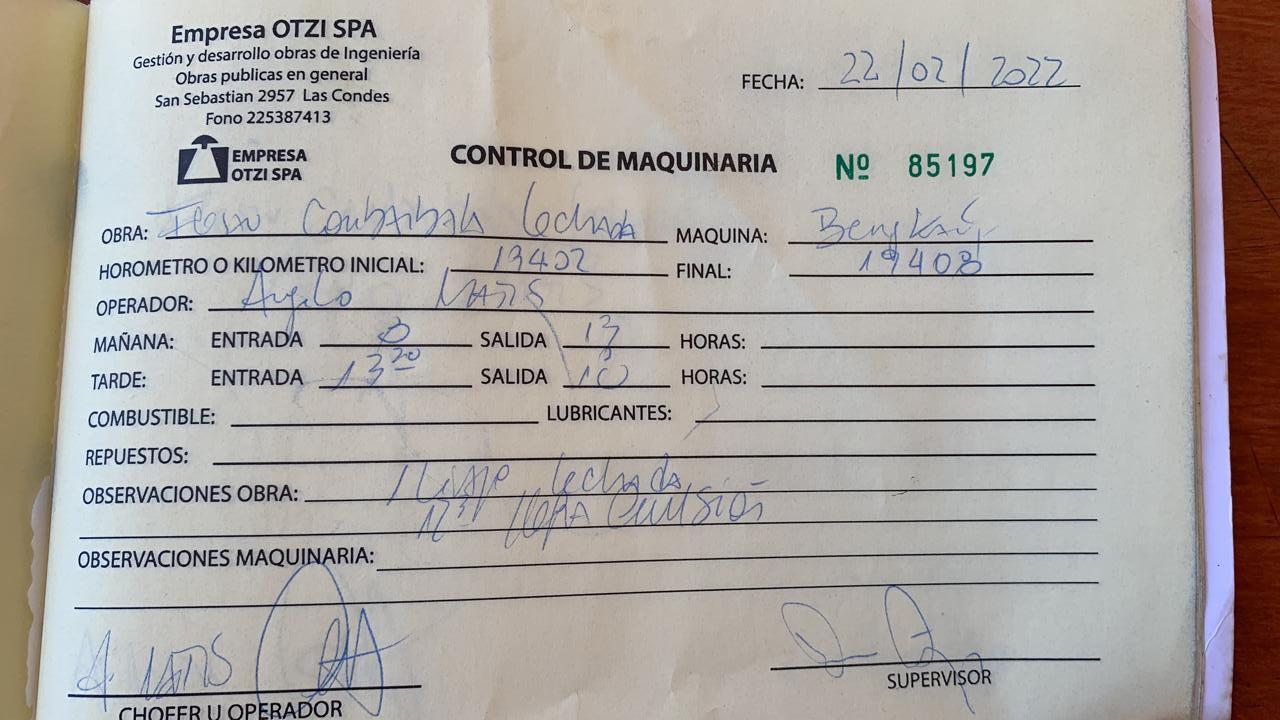 Empresa OTZI SPA
Gestión y desarrollo obras de Ingeniería
Obras publicas en general
San Sebastian 2957 Las Condes
Fono 225387413
FECHA: 22/02/2022
EMPRESA
OTZI SPA
CONTROL DE MAQUINARIA Nº 85197
OBRA: lechada MAQUINA:
HOROMETRO O KILOMETRO INICIAL: 19402 FINAL: 19408
OPERADOR: Angelo
MAÑANA: ENTRADA 8 SALIDA 13 HORAS:
TARDE: ENTRADA 13 20 SALIDA HORAS:
COMBUSTIBLE: LUBRICANTES:
REPUESTOS:
OBSERVACIONES OBRA: lechada
Emulsión
OBSERVACIONES MAQUINARIA:
CHOFER U OPERADOR
SUPERVISOR